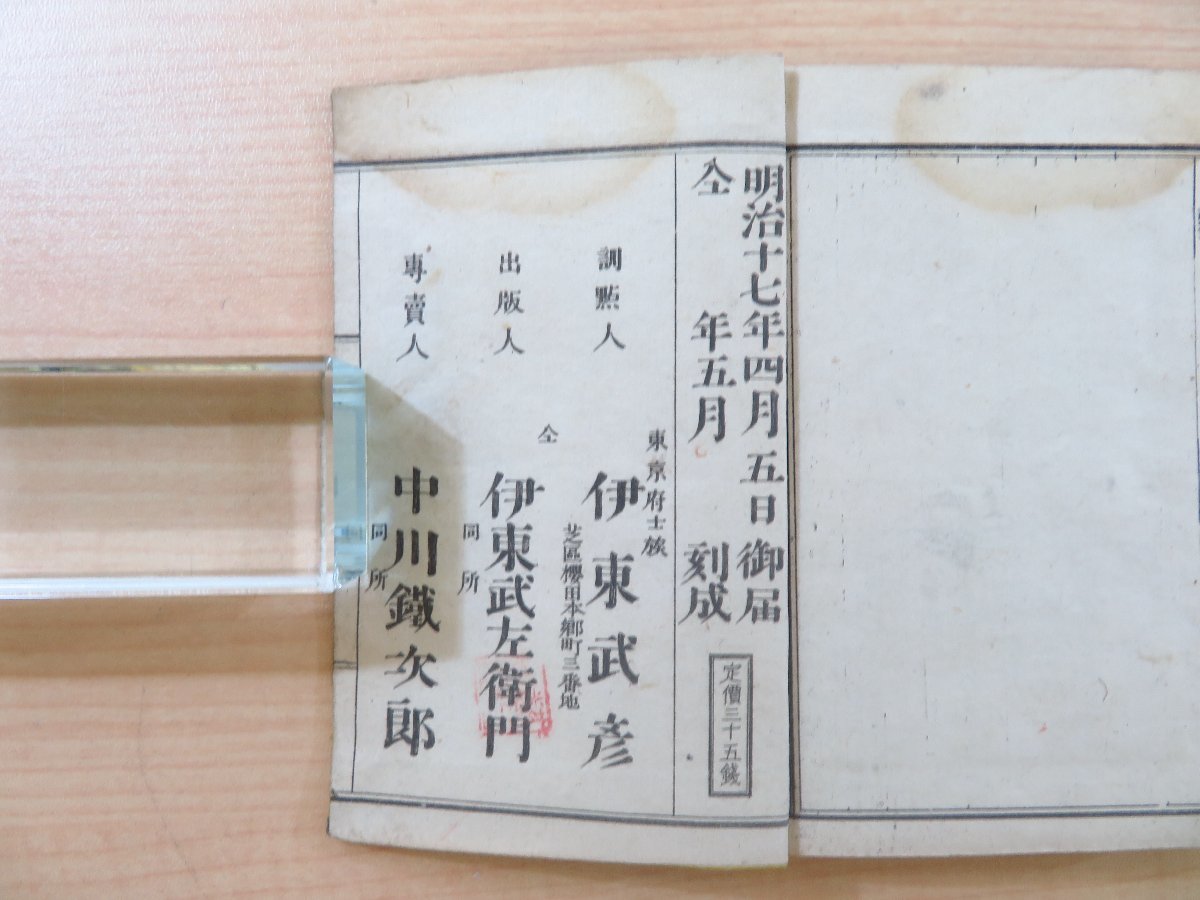 明治十七年四月五日御届
仝 年五月 刻成
定價三十五錢
東京府士族
訓點人 伊東武彦
芝區櫻田本鄉町三番地
仝
出版人 伊東武左衛門
同所
專賣人 中川鐵次郎
同所